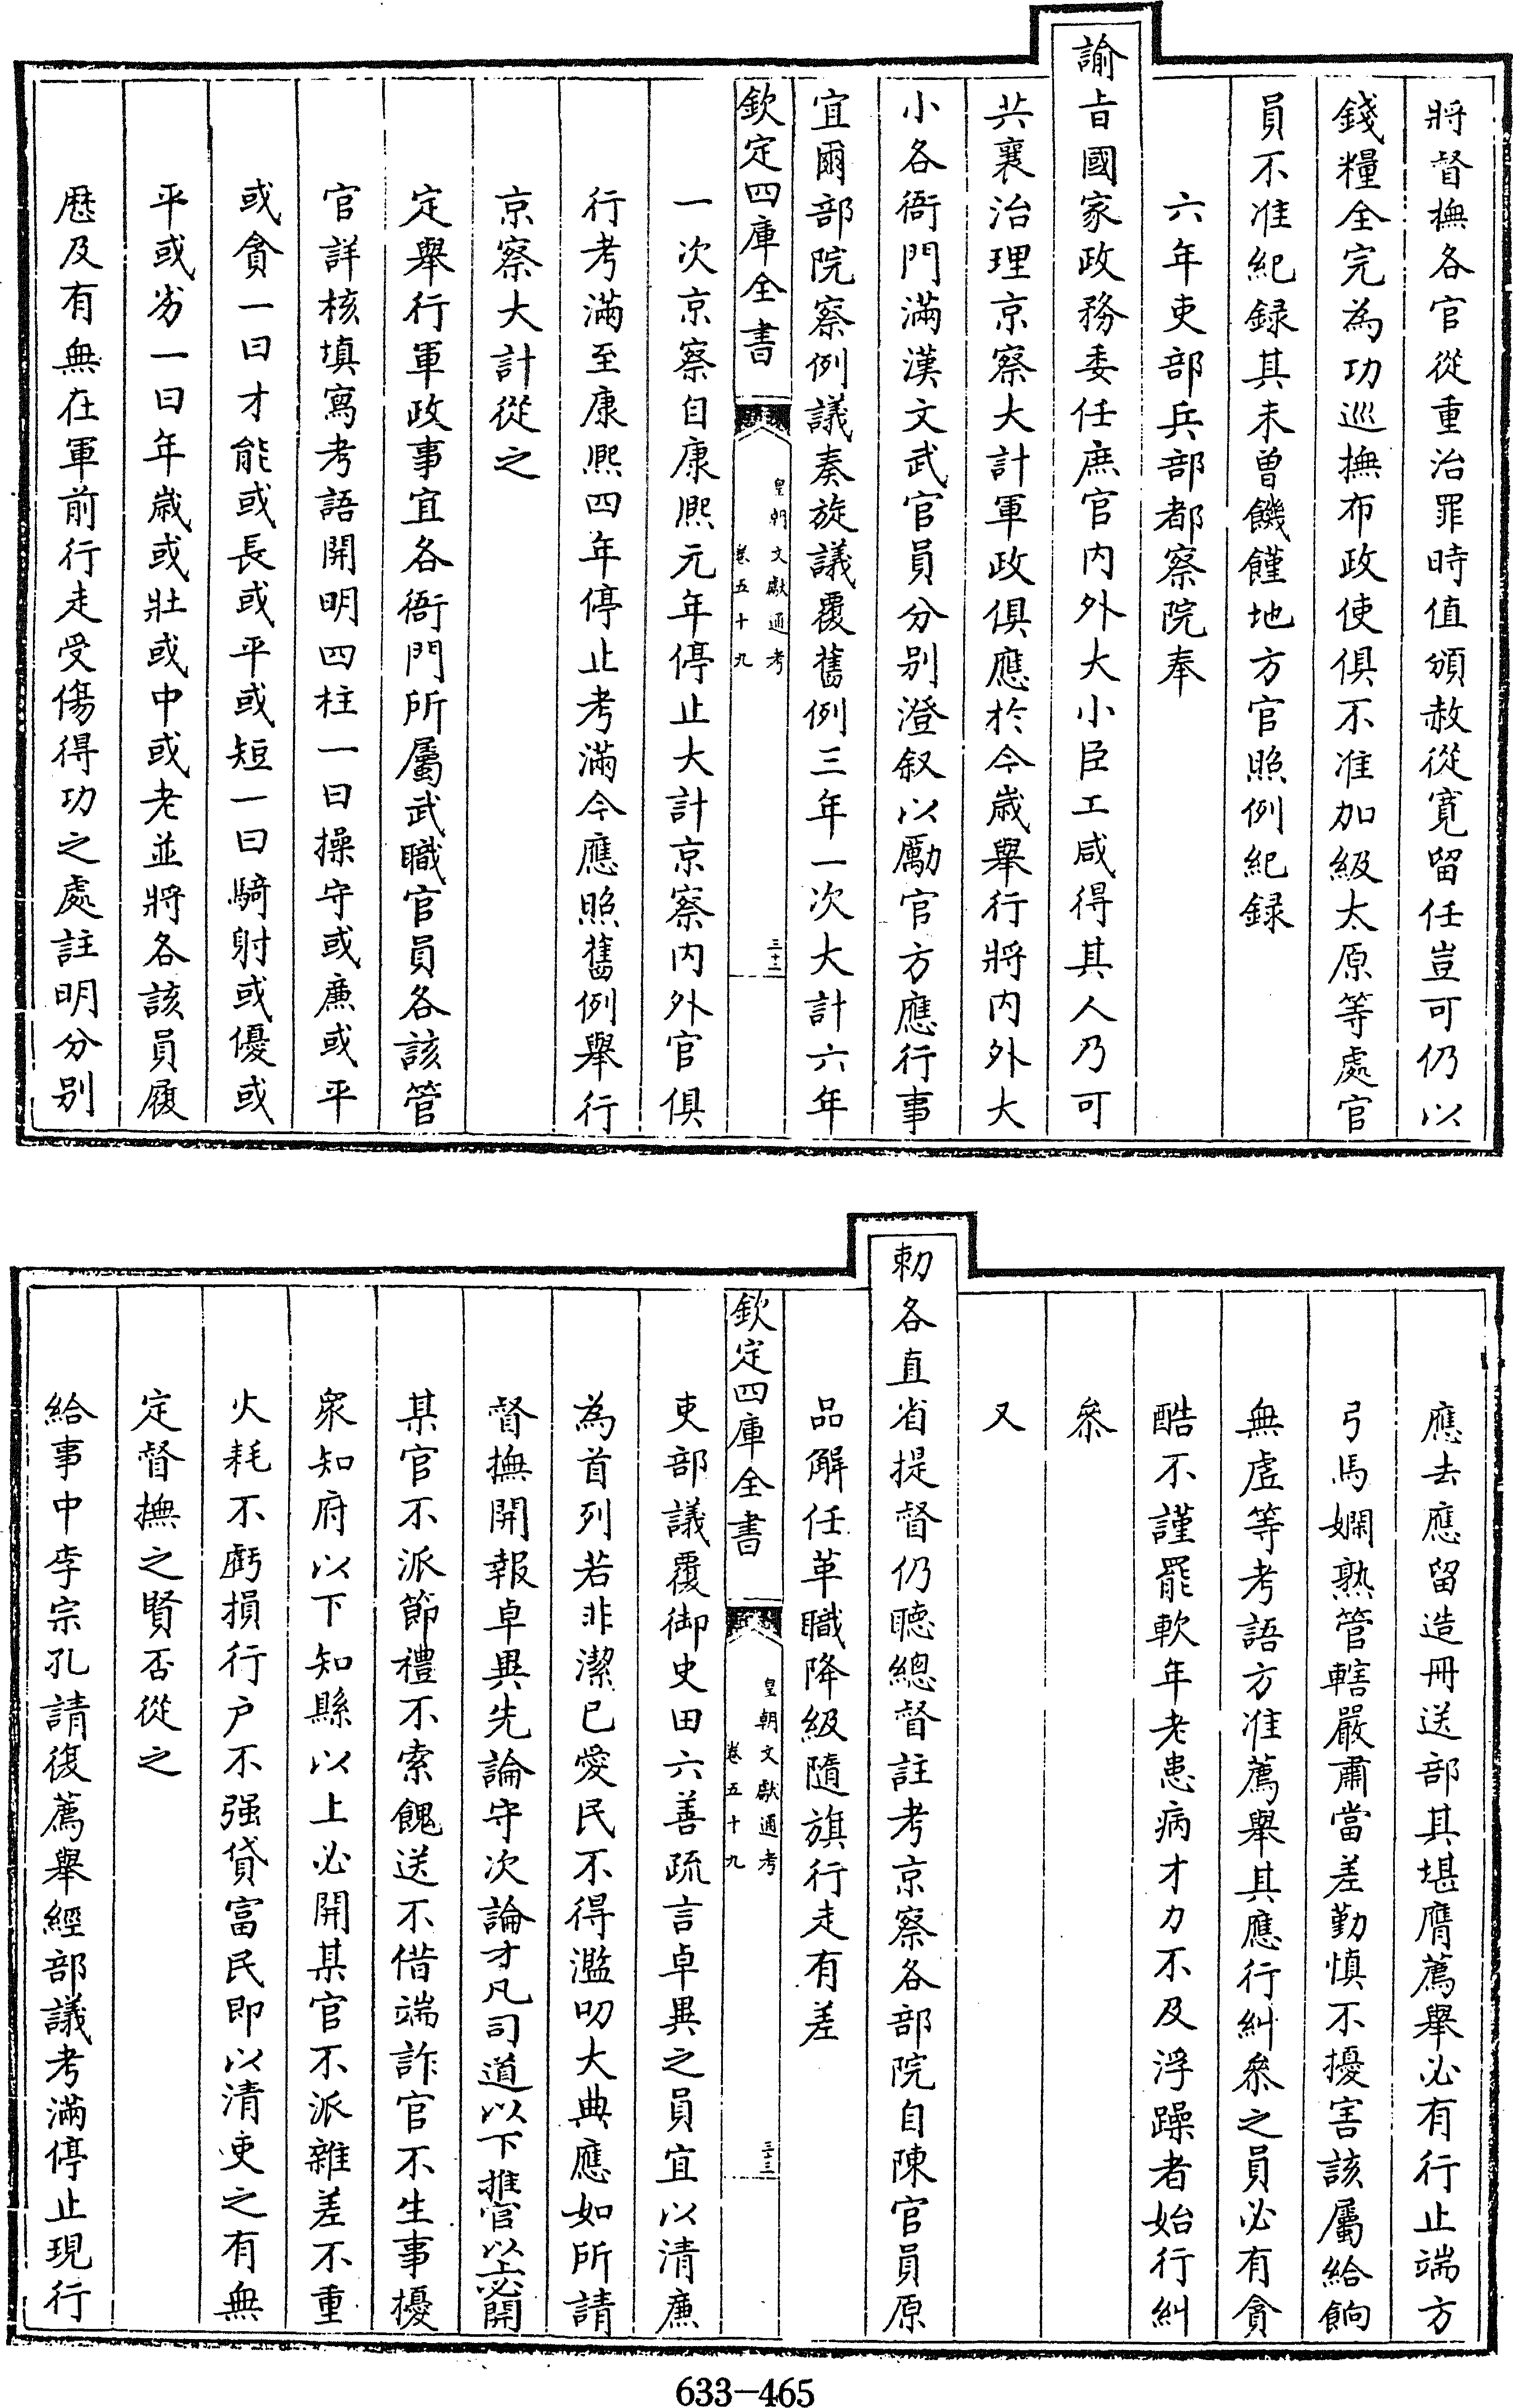 將督撫各官從重治罪時值頒赦從寛留任豈可仍以
錢糧全完為功巡撫布政使俱不准加級太原等處官
員不准紀録其未曾饑饉地方官照例紀録
六年吏部兵部都察院奉
諭㫖國家政務委任庶官内外大小臣工咸得其人乃可
共襄治理京察大計軍政俱應於今歲舉行將内外大
小各衙門滿漢文武官員分别澄叙以勵官方應行事
宜爾部院察例議奏旋議覆舊例三年一次大計六年
欽定四庫全書
皇朝文獻通考
卷五十九
三十二
一次京察自康熙元年停止大計京察内外官俱
行考滿至康熙四年停止考滿今應照舊例舉行
京察大計從之
定舉行軍政事宜各衙門所屬武職官員各該管
官詳核填寫考語開明四柱一曰操守或亷或平
或貪一曰才能或長或平或短一曰騎射或優或
平或劣一曰年歲或壯或中或老並將各該員履
歴及有無在軍前行走受傷得功之處註明分别
應去應留造冊送部其堪膺薦舉必有行止端方
弓馬嫻熟管轄嚴肅當差勤慎不擾害該屬給餉
無虛等考語方准薦舉其應行糾叅之員必有貪
酷不謹罷軟年老患病才力不及浮躁者始行糾
叅
又
勅各直省提督仍聴總督註考京察各部院自陳官員原
品解任革職降級隨旗行走有差
欽定四庫全書
皇朝文獻通考
卷五十九
三十三
吏部議覆御史田六善疏言卓異之員宜以清亷
為首列若非潔已愛民不得濫叨大典應如所請
督撫開報卓異先論守次論才凡司道以下推官以上必開
某官不派節禮不索餽送不借端詐官不生事擾
衆知府以下知縣以上必開某官不派雜差不重
火耗不虧損行户不强貸富民即以清吏之有無
定督撫之賢否從之
給事中李宗孔請復薦舉經部議考滿停止現行
633-465